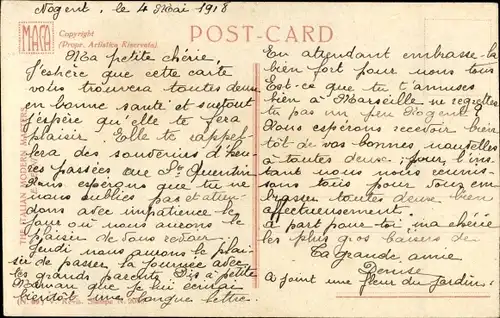 Nogent, le 4 Mai 1918
MACA
Copyright
(Propr. Artistica Riservata)
POST-CARD
Ma petite chérie,
J'espère que cette carte
vous trouvera toutes deux
en bonne santé et surtout
j'espère qu'elle te fera
plaisir. Elle te rappel-
lera des souvenirs d'heu-
res passées rue St Quentin
Nous espérons que tu ne
nous oublies pas et atten-
dons avec impatience le
jour où nous aurons le
plaisir de vous revoir.
Jeudi nous avons le plai-
sir de passer la journée avec
les grands parents. Dis à petite
Maman que je lui écrirai
bientôt une longue lettre.
En attendant embrasse-la
bien fort pour nous tous
Est-ce que tu t'amuses
bien à Marseille ne regrettes
tu pas un peu Nogent.
Nous espérons recevoir bien-
tôt de vos bonnes nouvelles
à toutes deux; pour l'ins-
tant nous nous réunis-
sons tous pour vous em-
brasser toutes deux bien
affectueusement.
à part pour toi, ma chérie
les plus gros baisers de
ta grande amie
Denise
à joint une fleur du jardin.
THE ITALIAN MODERN MASTERS